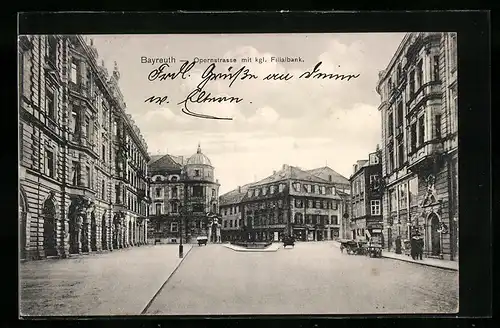 Bayreuth — Opernstrasse mit kgl. Filialbank.
Frdl. Grüße an Deine
w. Eltern